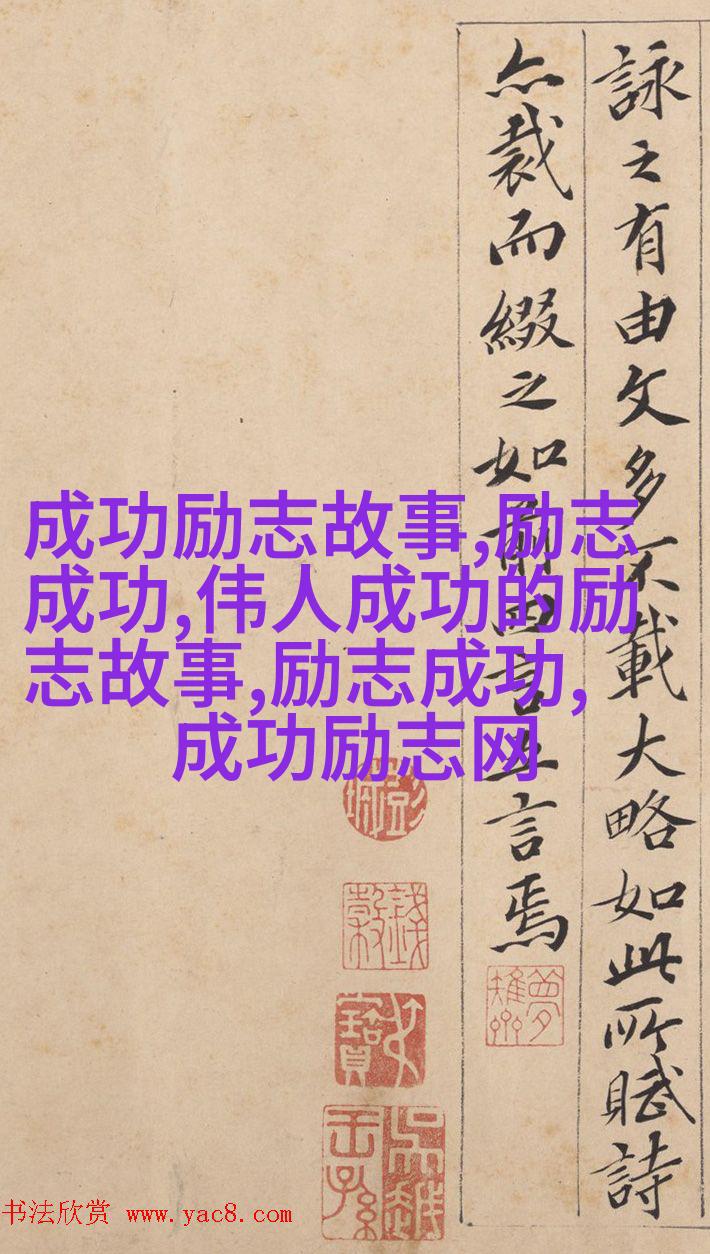 詠之有由文多不載大略如此所賦詩
亦裁而綴之如前四言五言焉
成功励志故事,励志
成功,伟人成功的励
志故事,励志成功,
成功励志网
书法欣赏 www.yac8.com